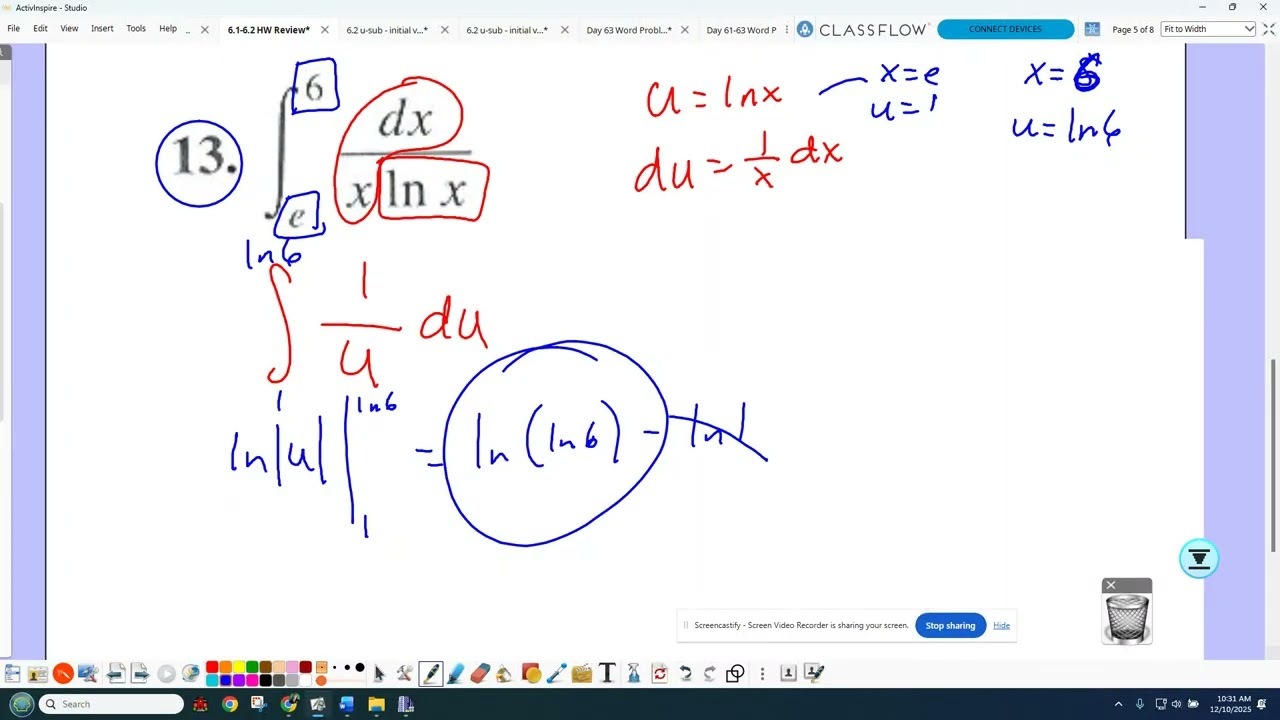 ActivInspire - Studio
File Edit View Insert Tools Help .. 6.1-6.2 HW Review* 6.2 u-sub - initial v...* 6.2 u-sub - initial v...* Day 63 Word Probl...* Day 61-63 Word P CLASSFLOW CONNECT DEVICES Page 5 of 8 Fit to Width
13. ∫ 6 e dx / x ln x
u = ln x
du = 1/x dx
x = e
u = 1
x = 6
u = ln 6
ln 6
∫ 1/u du
1
ln|u| | ln 6 1 = ln (ln 6) - ln 1
Screencastify - Screen Video Recorder is sharing your screen. Stop sharing Hide
T
Search
10:31 AM
12/10/2025